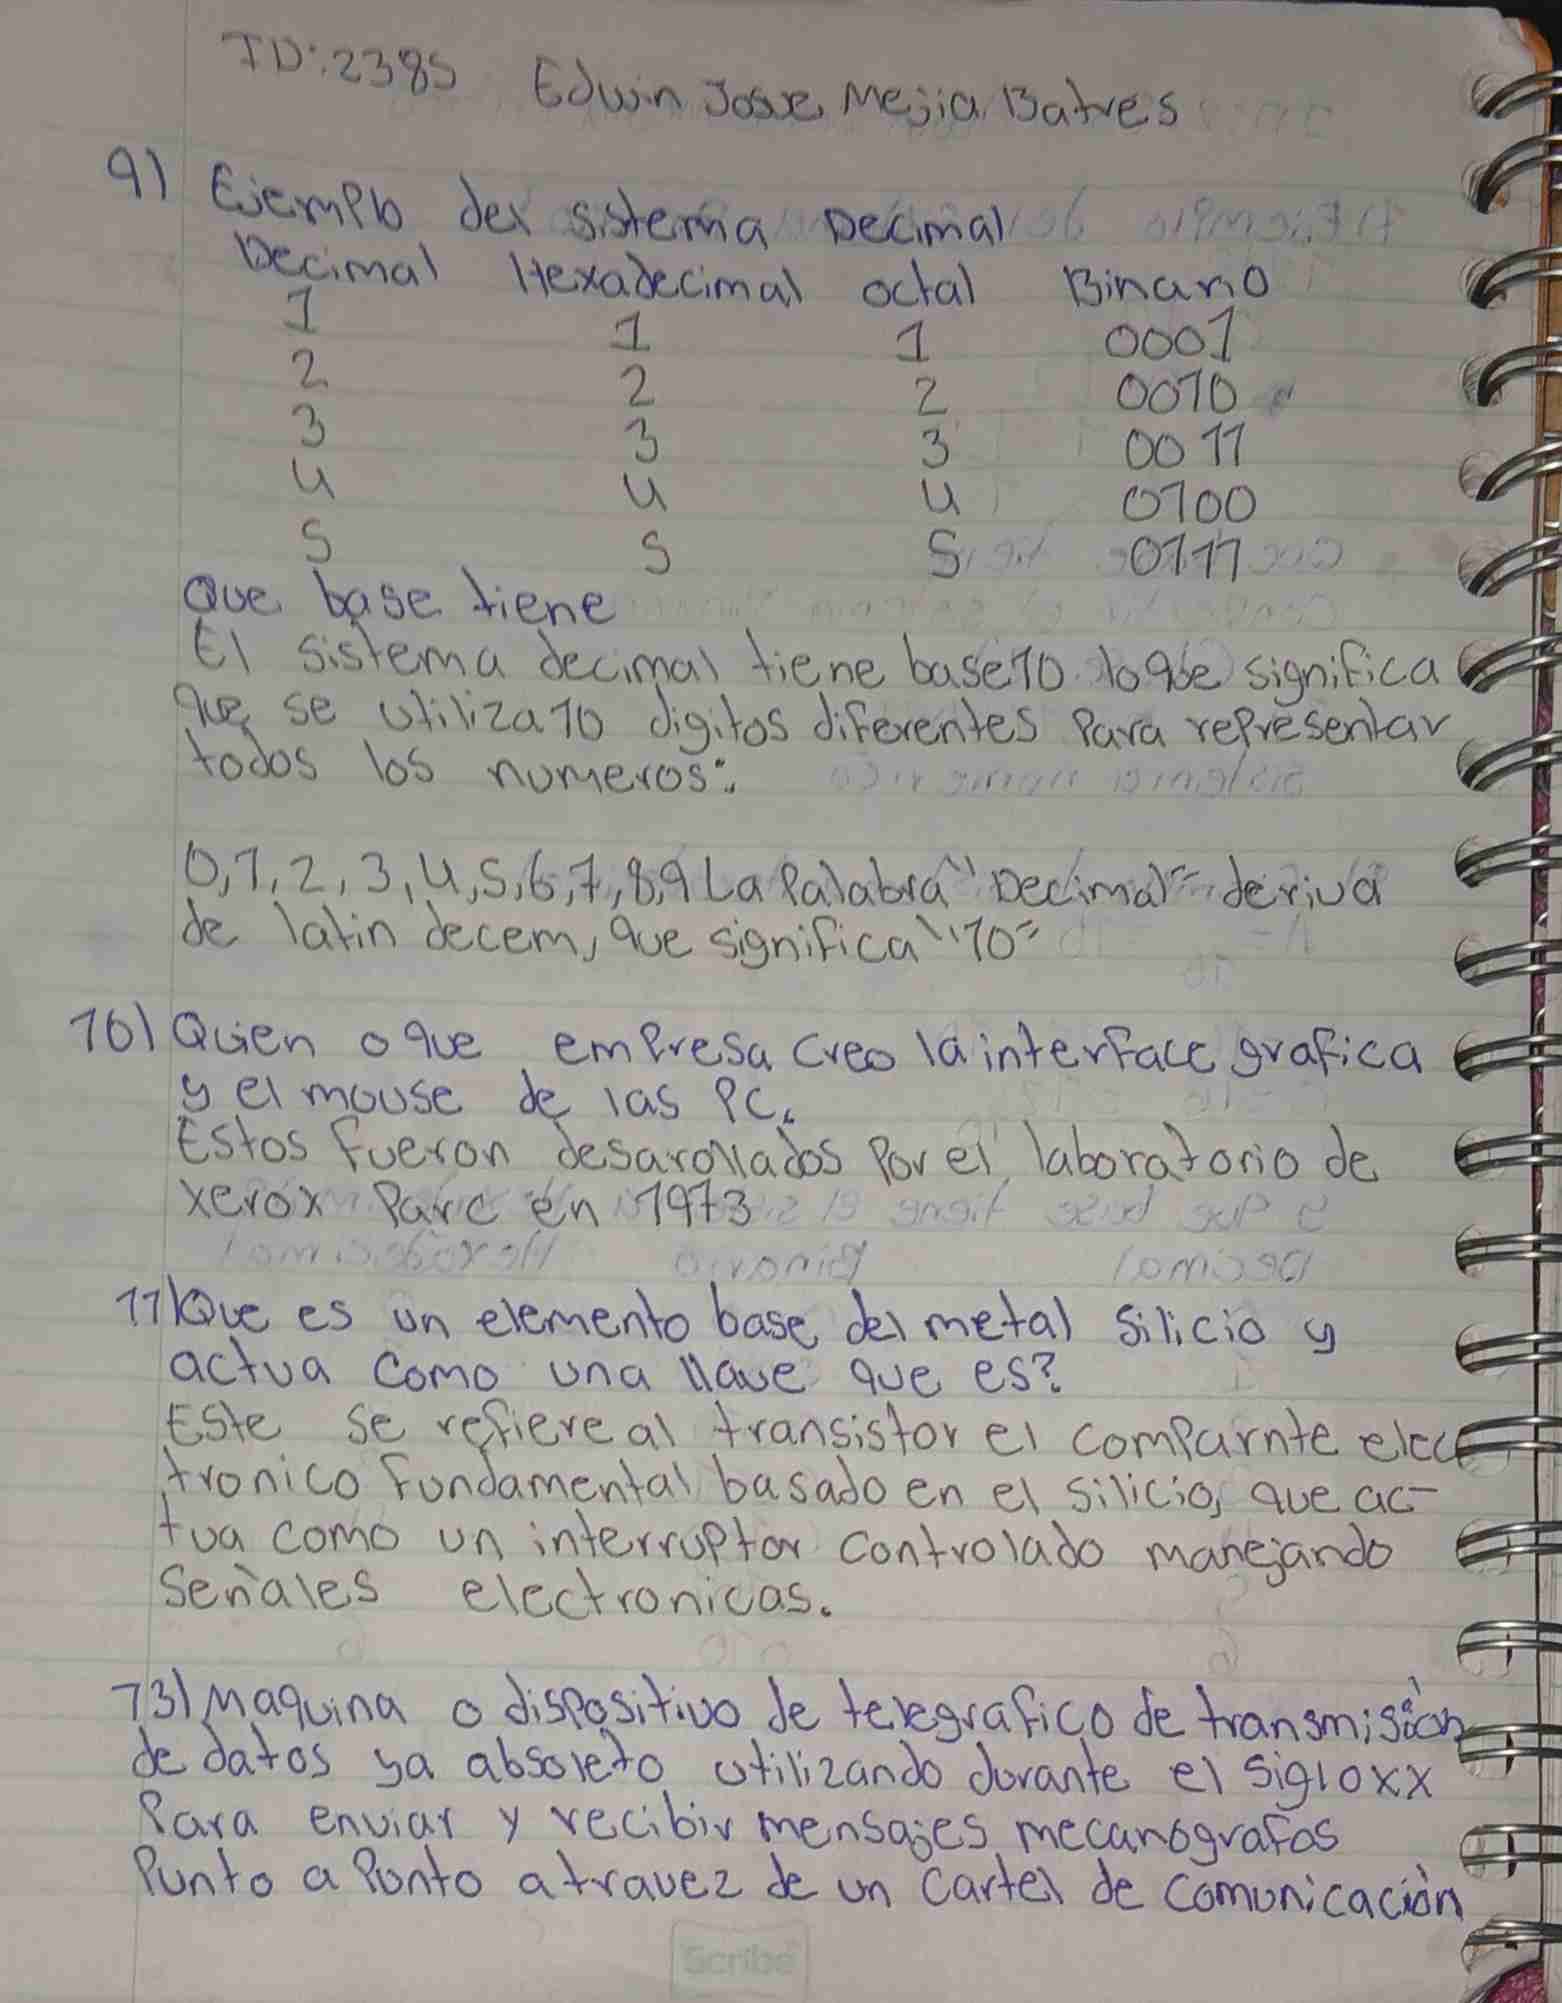 ID:2385 Edwin Josue Mejia Batres
9) Ejemplo del sistema Decimal
Decimal Hexadecimal octal Binario
1 1 1 0001
2 2 2 0010
3 3 3 0011
4 4 4 0100
5 5 5 0111
Que base tiene
El sistema decimal tiene base 10 lo que significa
que se utiliza 10 digitos diferentes Para representar
todos los numeros:
0,1,2,3,4,5,6,7,8,9 La Palabra "Decimal" deriva
de latin decem, que significa "10"
10) Quien o que empresa creo la interface grafica
y el mouse de las PC.
Estos fueron desarollados Por el laboratorio de
xerox Parc en 1973
11) Que es un elemento base del metal silicio y
actua como una llave que es?
Este se refiere al transistor el comparnte elec
tronico fundamental basado en el silicio, que ac-
tua como un interruptor controlado manejando
señales electronicas.
13) Maquina o dispositivo de telegrafico de transmisión
de datos ya absoleto utilizando durante el siglo xx
Para enviar y recibir mensajes mecanografos
Punto a Punto atravez de un cartel de comunicación
Scribe